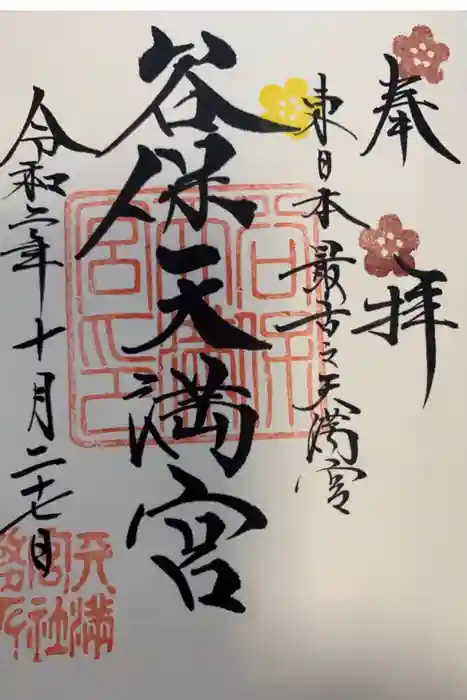 奉拝
東日本最古之天満宮
谷保天満宮
令和二年十月二十七日
谷保天満宮印
天満宮社務所